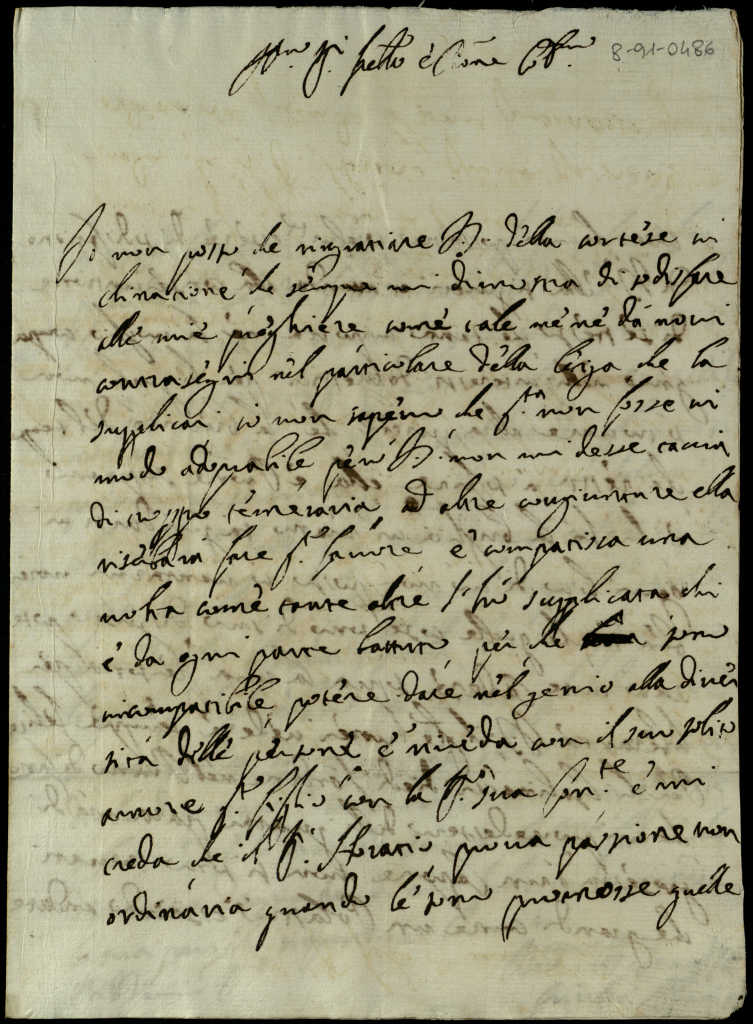 Ill.mo Sr. fratello è Sig.re Oss.mo
8-91-0486
Io non posso che ringratiare V.S. della cortese in
clinatione che sempre mi dimostra di sodisfare
alle mie preghiere come tale me ne dà novi
contrasegni nel particolare della che la
supplicai io non sapevo che q.ta non fosse in
modo adoprabile però V.S. non mi desse taccia
di troppo temeraria ad altre congiunture ella
riserbarà fare q.to favore e compatisca una
volta come tante altre l'hò supplicata chi
è da ogni parte battuto per che sono
incompatibile potere dare nel genio alla diver
sità delle persone e riveda con il suo solito
amore q.to figlio con la Sig.ra sua Con.te e mi
creda che il Sr. Horatio prova passione non
ordinaria quando le sono promosse quelle